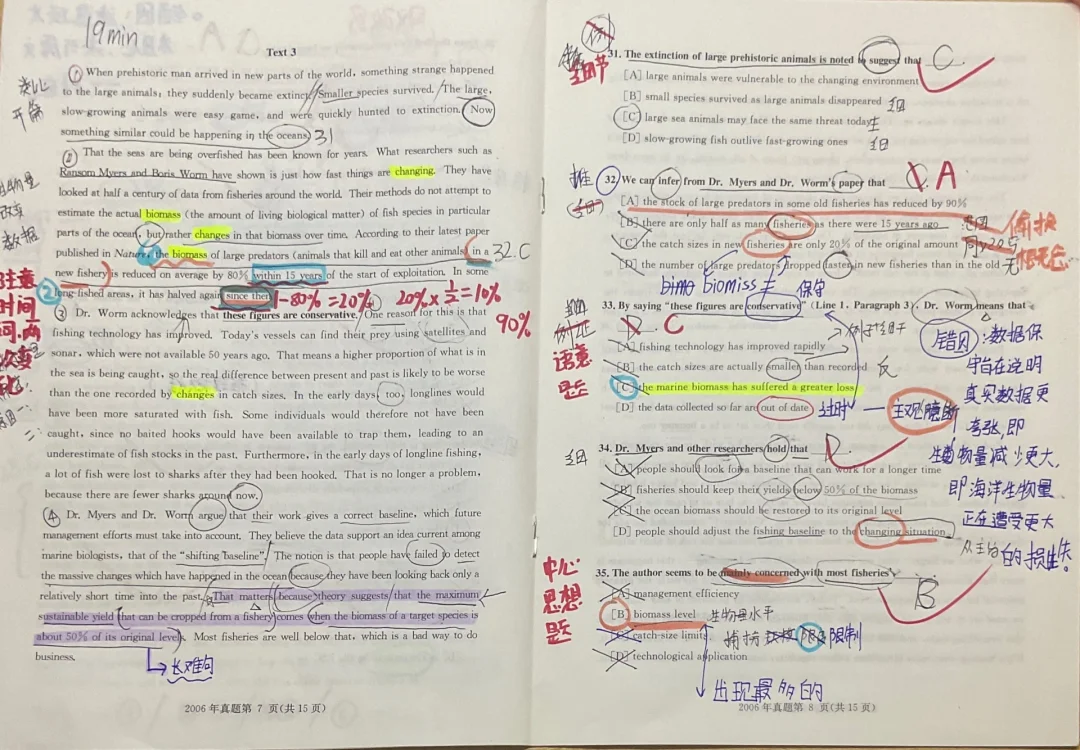 19min
Text 3
① When prehistoric man arrived in new parts of the world, something strange happened
to the large animals; they suddenly became extinct. Smaller species survived. The large,
slow-growing animals were easy game, and were quickly hunted to extinction. Now
something similar could be happening in the oceans. 31
② That the seas are being overfished has been known for years. What researchers such as
Ransom Myers and Boris Worm have shown is just how fast things are changing. They have
looked at half a century of data from fisheries around the world. Their methods do not attempt to
estimate the actual biomass (the amount of living biological matter) of fish species in particular
parts of the ocean, but rather changes in that biomass over time. According to their latest paper
published in Nature, the biomass of large predators (animals that kill and eat other animals) in a 32.C
new fishery is reduced on average by 80% within 15 years of the start of exploitation. In some
long-fished areas, it has halved again since then. 1-80%=20% 20%×1/2=10%
90%
③ Dr. Worm acknowledges that these figures are conservative. One reason for this is that
fishing technology has improved. Today's vessels can find their prey using satellites and
sonar, which were not available 50 years ago. That means a higher proportion of what is in
the sea is being caught, so the real difference between present and past is likely to be worse
than the one recorded by changes in catch sizes. In the early days, too, longlines would
have been more saturated with fish. Some individuals would therefore not have been
caught, since no baited hooks would have been available to trap them, leading to an
underestimate of fish stocks in the past. Furthermore, in the early days of longline fishing,
a lot of fish were lost to sharks after they had been hooked. That is no longer a problem,
because there are fewer sharks around now.
④ Dr. Myers and Dr. Worm argue that their work gives a correct baseline, which future
management efforts must take into account. They believe the data support an idea current among
marine biologists, that of the "shifting baseline". The notion is that people have failed to detect
the massive changes which have happened in the ocean because they have been looking back only a
relatively short time into the past. That matters because theory suggests that the maximum
sustainable yield that can be cropped from a fishery comes when the biomass of a target species is
about 50% of its original level. Most fisheries are well below that, which is a bad way to do
business.
长难句
类比
开篇
2006 年真题第 7 页(共 15 页)
细节
31. The extinction of large prehistoric animals is noted to suggest that C
[A] large animals were vulnerable to the changing environment
[B] small species survived as large animals disappeared
[C] large sea animals may face the same threat today
[D] slow-growing fish outlive fast-growing ones
推
32. We can infer from Dr. Myers and Dr. Worm's paper that A
[A] the stock of large predators in some old fisheries has reduced by 90%
[B] there are only half as many fisheries as there were 15 years ago
偷换
[C] the catch sizes in new fisheries are only 20% of the original amount
[D] the number of large predators dropped faster in new fisheries than in the old 无
保守
33. By saying "these figures are conservative" (Line 1, Paragraph 3), Dr. Worm means that
C
语意
题
[A] fishing technology has improved rapidly
[B] the catch sizes are actually smaller than recorded 反
[C] the marine biomass has suffered a greater loss
[D] the data collected so far are out of date 过时 — 主观臆断
错因:数据保
守旨在说明
真实数据更
夸张,即
生物量减少更大,
即海洋生物量
正在遭受更大
的损失
34. Dr. Myers and other researchers hold that D
[A] people should look for a baseline that can work for a longer time
[B] fisheries should keep their yields below 50% of the biomass
[C] the ocean biomass should be restored to its original level
[D] people should adjust the fishing baseline to the changing situation
中心
思想
题
35. The author seems to be mainly concerned with most fisheries' B
[A] management efficiency
[B] biomass level 生物量水平
[C] catch-size limits 限制
[D] technological application
出现最多的
2006 年真题第 8 页(共 15 页)